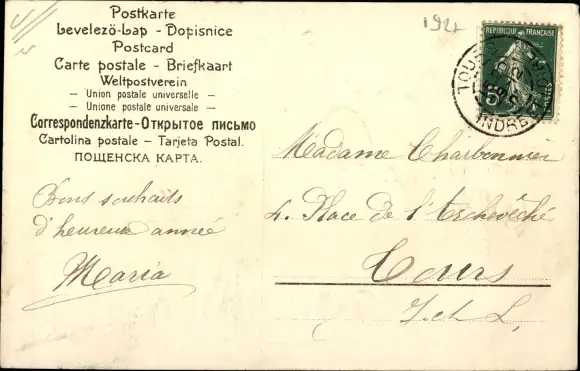 Postkarte
Levelezö-Lap - Dopisnice
Postcard
Carte postale - Briefkaart
Weltpostverein
- Union postale universelle -
- Unione postale universale -
Correspondenzkarte-Открытое письмо
Cartolina postale - Tarjeta Postal.
ПОЩЕНСКА КАРТА.
192
REPUBLIQUE FRANÇAISE
5
TOURS
INDRE
Bons souhaits
d'heureuse année
Maria
Madame Charbonnier
4. Place de l'Archevêché
Tours
I. et L.